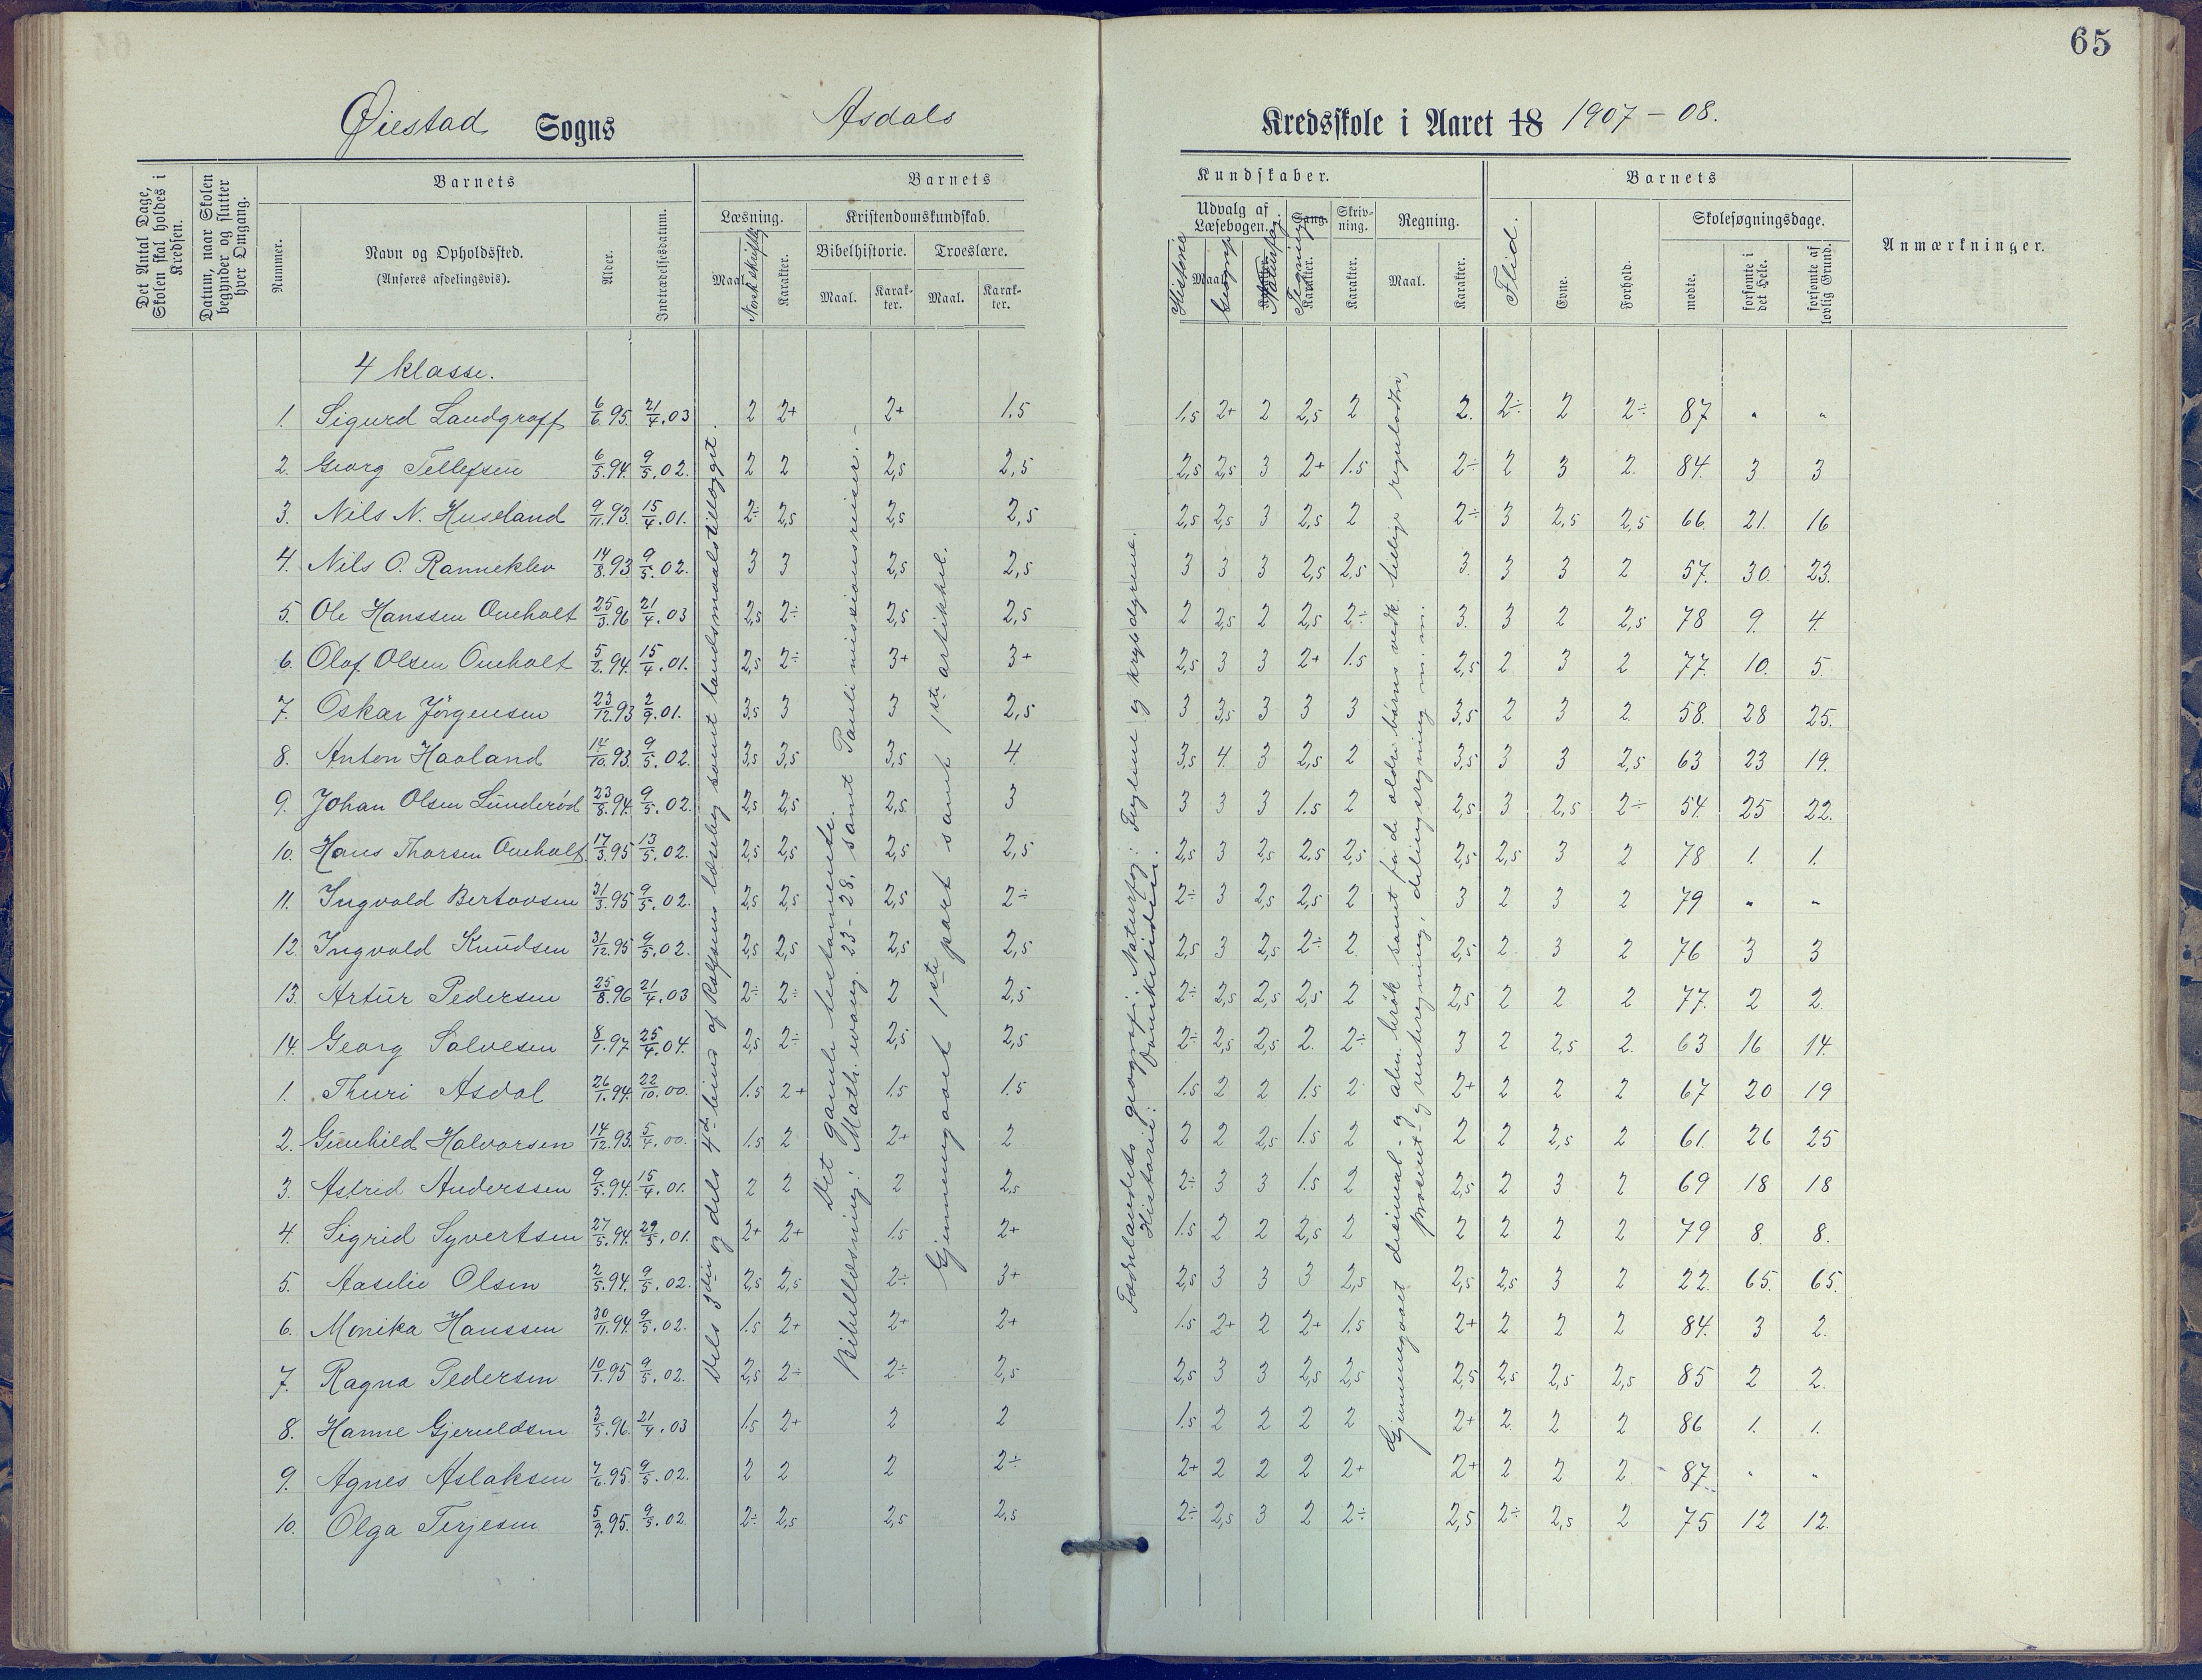 65
Øiestad Sogns Asdals Kredsskole i Aaret 18 1907 - 08.
Det Antal Dage, Skolen skal holdes i Kredsen.
Datum, naar Skolen begynder og slutter hver Omgang.
Barnets
Nummer.
Navn og Opholdssted.
(Anføres afdelingsvis).
Alder.
Indtrædelsesdatum.
Barnets Kundskaber.
Læsning.
Maal.
Norsk skriftlig
Karakter.
Kristendomskundskab.
Bibelhistorie.
Maal.
Karakter.
Troeslære.
Maal.
Karakter.
Udvalg af Læsebogen.
Historie
Maal.
Geografi
Naturfag.
Sang.
Tegning
Karakter.
Skrivning.
Karakter.
Regning.
Maal.
Karakter.
Barnets
Flid.
Evne.
Forhold.
Skolesøgningsdage.
mødte.
forsømte i det Hele.
forsømte af lovlig Grund.
Anmærkninger.
4 klasse.
1. Sigurd Landgraff 6/6.95. 21/4.03 2 2+ 2+ 1.5 1.5 2+ 2 2,5 2 2. 2÷ 2 2÷ 87 " "
2. Georg Tellefsen 6/5.94. 9/5.02. 2 2 2,5 2,5 2,5 2,5 3 2+ 1.5 2÷ 2 3 2. 84. 3 3
3. Nils N. Huseland 9/11.93. 15/4.01. 2÷ 2,5 2,5 2,5 2,5 2,5 3 2,5 2 2÷ 3 2,5 2,5 66. 21. 16
4. Nils O. Ranneklev 14/8.93 9/5.02. 3 3 2,5 2,5 3 3 3 2,5 2,5 3. 3 3 2 57. 30. 23.
5. Ole Hanssen Oueholt 25/3.96 21/4.03 2,5 2÷ 2,5 2,5 2 2,5 2 2,5 2÷ 3. 3 2 2,5 78 9. 4.
6. Olaf Olsen Oueholt 5/2.94. 15/4.01. 2,5 2÷ 3+ 3+ 2,5 3 3 2+ 1.5 2,5 2 3 2 77. 10. 5.
7. Oskar Jörgensen 23/12.93 2/9.01. 3,5 3 3 2,5 3 3,5 3 3 3 3,5 2 3 2 58. 28 25.
8. Anton Haaland 14/10.93. 9/5.02. 3,5 3,5 3,5 4 3,5 4. 3 2,5 2 3,5 3 3 2,5 63 23 19.
9. Johan Olsen Lunderød 23/8.94. 9/5.02. 2,5 2,5 2,5 3 3 3 3 1.5 2 2,5 3 2,5 2÷ 54. 25 22.
10. Hans Thorsen Oueholt 17/3.95 13/5.02. 2,5 2,5 2,5 2,5 2,5 3 2,5 2,5 2,5 2,5 2,5 3 2 78 1. 1.
11. Ingvald Bertovsen 31/3.95 9/5.02. 2,5 2,5 2,5 2÷ 2÷ 3 2,5 2,5 2 3 2 3 2 79 " "
12. Ingvald Knudsen 31/12.95 9/5.02. 2,5 2,5 2,5 2,5 2,5 3 2,5 2÷ 2 2,5 2 3 2 76 3 3
13. Artur Pedersen 25/8.96 21/4.03 2÷ 2÷ 2 2,5 2÷ 2,5 2,5 2,5 2 2,5 2 2 2 77. 2 2.
14. Georg Salvesen 8/1.97 25/4.04. 2,5 2÷ 2,5 2,5 2÷ 2,5 2,5 2. 2÷ 3 2 2,5 2. 63 16 14.
1. Thuri Asdal 26/1.94. 22/10.00. 1.5 2+ 1.5 1.5 1.5 2 2 1.5 2 2+ 2 2 2 67 20 19
2. Gunhild Halvorsen 14/12.93. 5/4.00. 1.5 2 2+ 2 2 2 2,5 1.5 2 2 2 2,5 2 61. 26 25
3. Astrid Anderssen 9/5.94. 15/4.01. 2 2 2 2,5 2÷ 3 3 1.5 2 2,5 2 3 2 69 18 18
4. Sigrid Syvertsen 27/5.94. 29/5.01. 2+ 2+ 1.5 2+ 1.5 2 2 2,5 2 2 2 2 2 79 8. 8.
5. Aaselie Olsen 2/5.94. 9/5.02. 2,5 2,5 2÷ 3+ 2,5 3 3 3 2,5 2,5 2,5 3 2 22. 65. 65.
6. Monika Hanssen 30/11.94. 9/5.02. 1.5 2+ 2+ 2+ 1.5 2+ 2 2+ 1.5 2+ 2 2 2 84. 3 2.
7. Ragna Pedersen 10/1.95 9/5.02. 2,5 2÷ 2÷ 2,5 2,5 3 3 2,5 2,5 2,5 2,5 2,5 2,5 85 2 2.
8. Hanne Gjeruldsen 3/5.96. 21/4.03 1.5 2+ 2 2 1.5 2 2 2 2 2+ 2 2 2 86 1. 1.
9. Agnes Aslaksen 7/6.95. 9/5.02. 2 2 2 2÷ 2+ 2 2 2 2+ 2+ 2 2 2 87. " "
10. Olga Terjesen 5/9.95. 9/5.02 2÷ 2,5 2,5 2,5 2÷ 2,5 3 2 2÷ 2,5 2÷ 2,5 2 75 12 12.
Dels 3die og dels 4de bind af Rolfsens læsebog samt landsmaalstillegget.
Det gamle testamente.
Bibellæsning: Math. evang. 23-28, samt Pauli missionsreiser.
Gjennemgaaet 1ste part samt 1ste artikkel.
Fædrelandets geografi. Naturfag: Fuglene og krybdyrene.
Historie:
Gjennemgaaet desimal- og alm. brök samt for de eldre börns vedk. tillige reguladetri,
prosent- og rentesregning, delingsregning m.m.